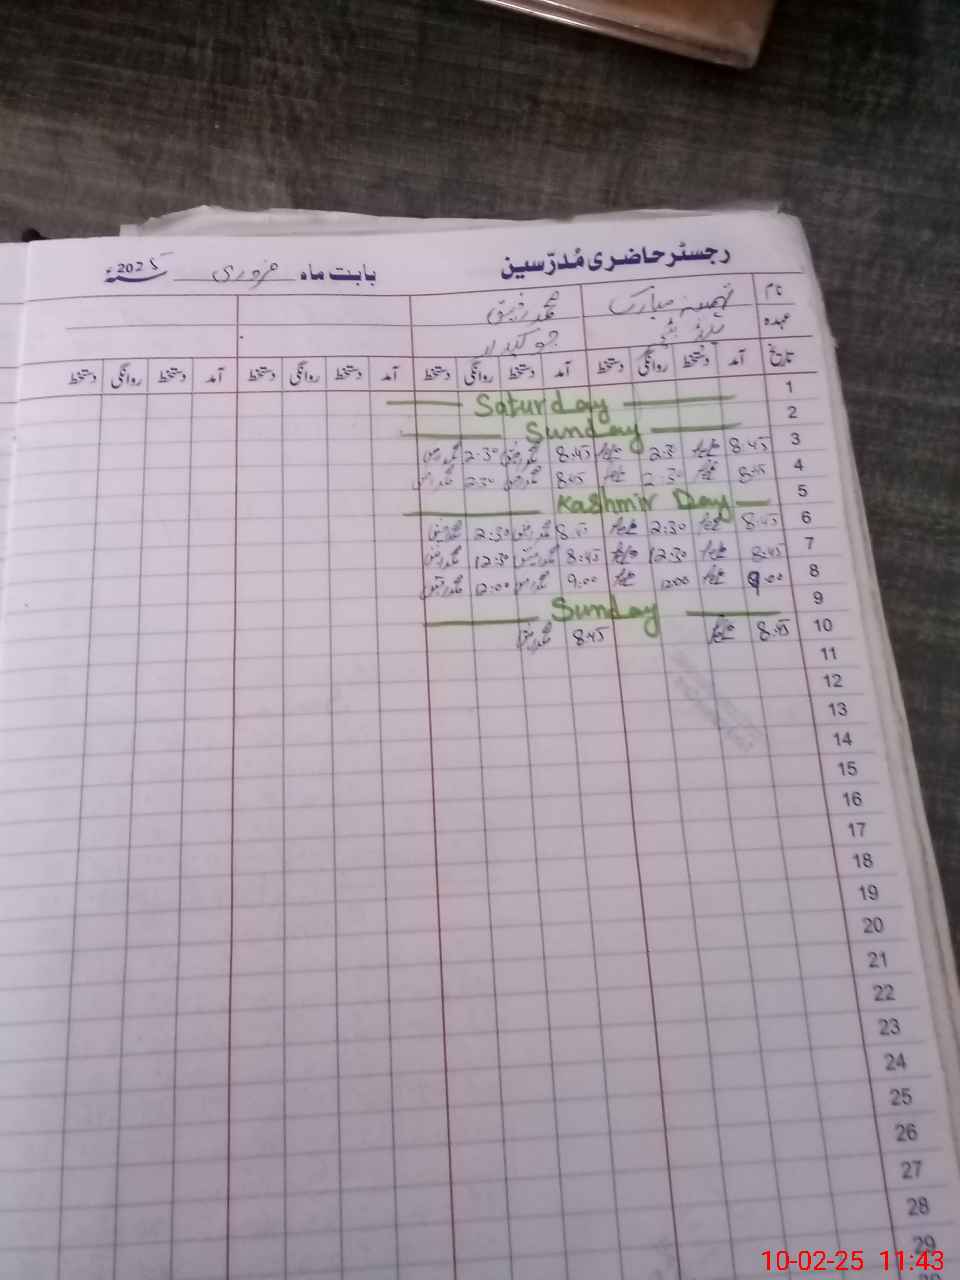 رجسٹر حاضری مُدرّسین بابت ماہ فروری سنہ 2025
نام تہمینہ مبارک محمد رفیق
عہدہ چوکیدار
تاریخ آمد دستخط روانگی دستخط آمد دستخط روانگی دستخط آمد دستخط روانگی دستخط آمد دستخط روانگی دستخط
1 Saturday
2 Sunday
3 8:45 2:30 8:45 محمد رفیق 2:30 محمد رفیق
4 8:45 2:30 8:45 محمد رفیق 2:30 محمد رفیق
5 Kashmir Day
6 8:45 2:30 8:45 محمد رفیق 2:30 محمد رفیق
7 8:45 12:30 8:45 محمد رفیق 12:30 محمد رفیق
8 9:00 12:00 9:00 محمد رفیق 12:00 محمد رفیق
9 Sunday
10 8:45 8:45 محمد رفیق
11
12
13
14
15
16
17
18
19
20
21
22
23
24
25
26
27
28
29
10-02-25 11:43